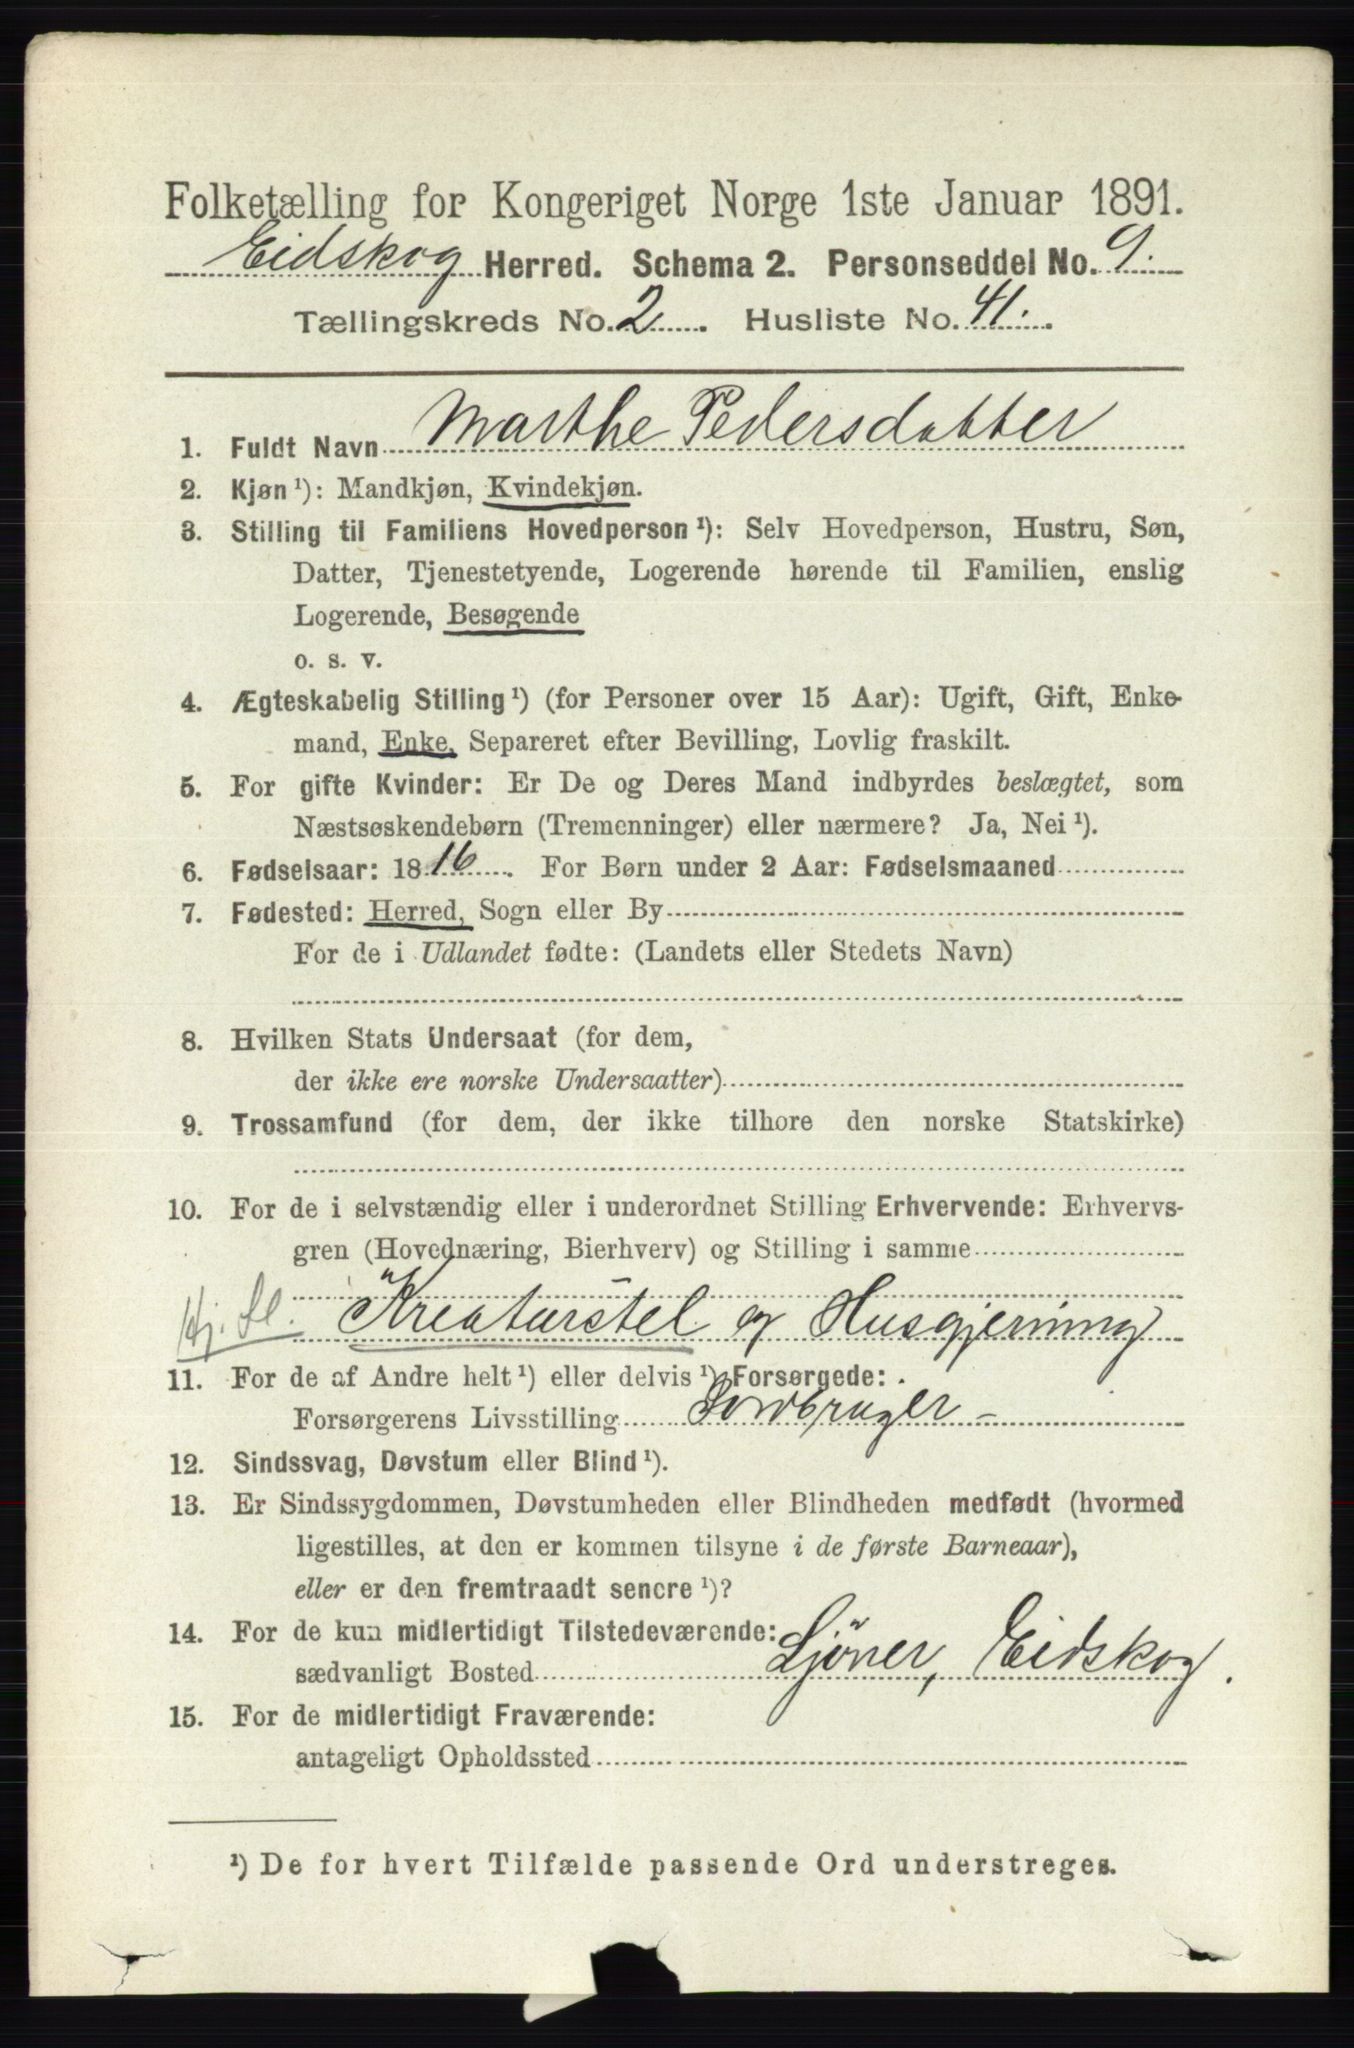 Folketælling for Kongeriget Norge 1ste Januar 1891.
Eidskog Herred. Schema 2. Personseddel No. 9.
Tællingskreds No. 2. Husliste No. 41.
1. Fuldt Navn Marthe Pedersdatter
2. Kjøn ¹): Mandkjøn, Kvindekjøn.
3. Stilling til Familiens Hovedperson ¹): Selv Hovedperson, Hustru, Søn,
Datter, Tjenestetyende, Logerende hørende til Familien, enslig
Logerende, Besøgende
o. s. v.
4. Ægteskabelig Stilling ¹) (for Personer over 15 Aar): Ugift, Gift, Enke-
mand, Enke, Separeret efter Bevilling, Lovlig fraskilt.
5. For gifte Kvinder: Er De og Deres Mand indbyrdes beslægtet, som
Næstsøskendebørn (Tremenninger) eller nærmere? Ja, Nei ¹).
6. Fødselsaar: 1816. For Børn under 2 Aar: Fødselsmaaned
7. Fødested: Herred, Sogn eller By
For de i Udlandet fødte: (Landets eller Stedets Navn)
8. Hvilken Stats Undersaat (for dem,
der ikke ere norske Undersaatter)
9. Trossamfund (for dem, der ikke tilhøre den norske Statskirke)
10. For de i selvstændig eller i underordnet Stilling Erhvervende: Erhvervs-
gren (Hovednæring, Bierhverv) og Stilling i samme
Hj. Sl. Kreaturstel og Husgjerning
11. For de af Andre helt ¹) eller delvis ¹) Forsørgede:
Forsørgerens Livsstilling Jordbruger -
12. Sindssvag, Døvstum eller Blind ¹).
13. Er Sindssygdommen, Døvstumheden eller Blindheden medfødt (hvormed
ligestilles, at den er kommen tilsyne i de første Barneaar),
eller er den fremtraadt senere ¹)?
14. For de kun midlertidigt Tilstedeværende:
sædvanligt Bosted Ljöner, Eidskog.
15. For de midlertidigt Fraværende:
antageligt Opholdssted
¹) De for hvert Tilfælde passende Ord understreges.